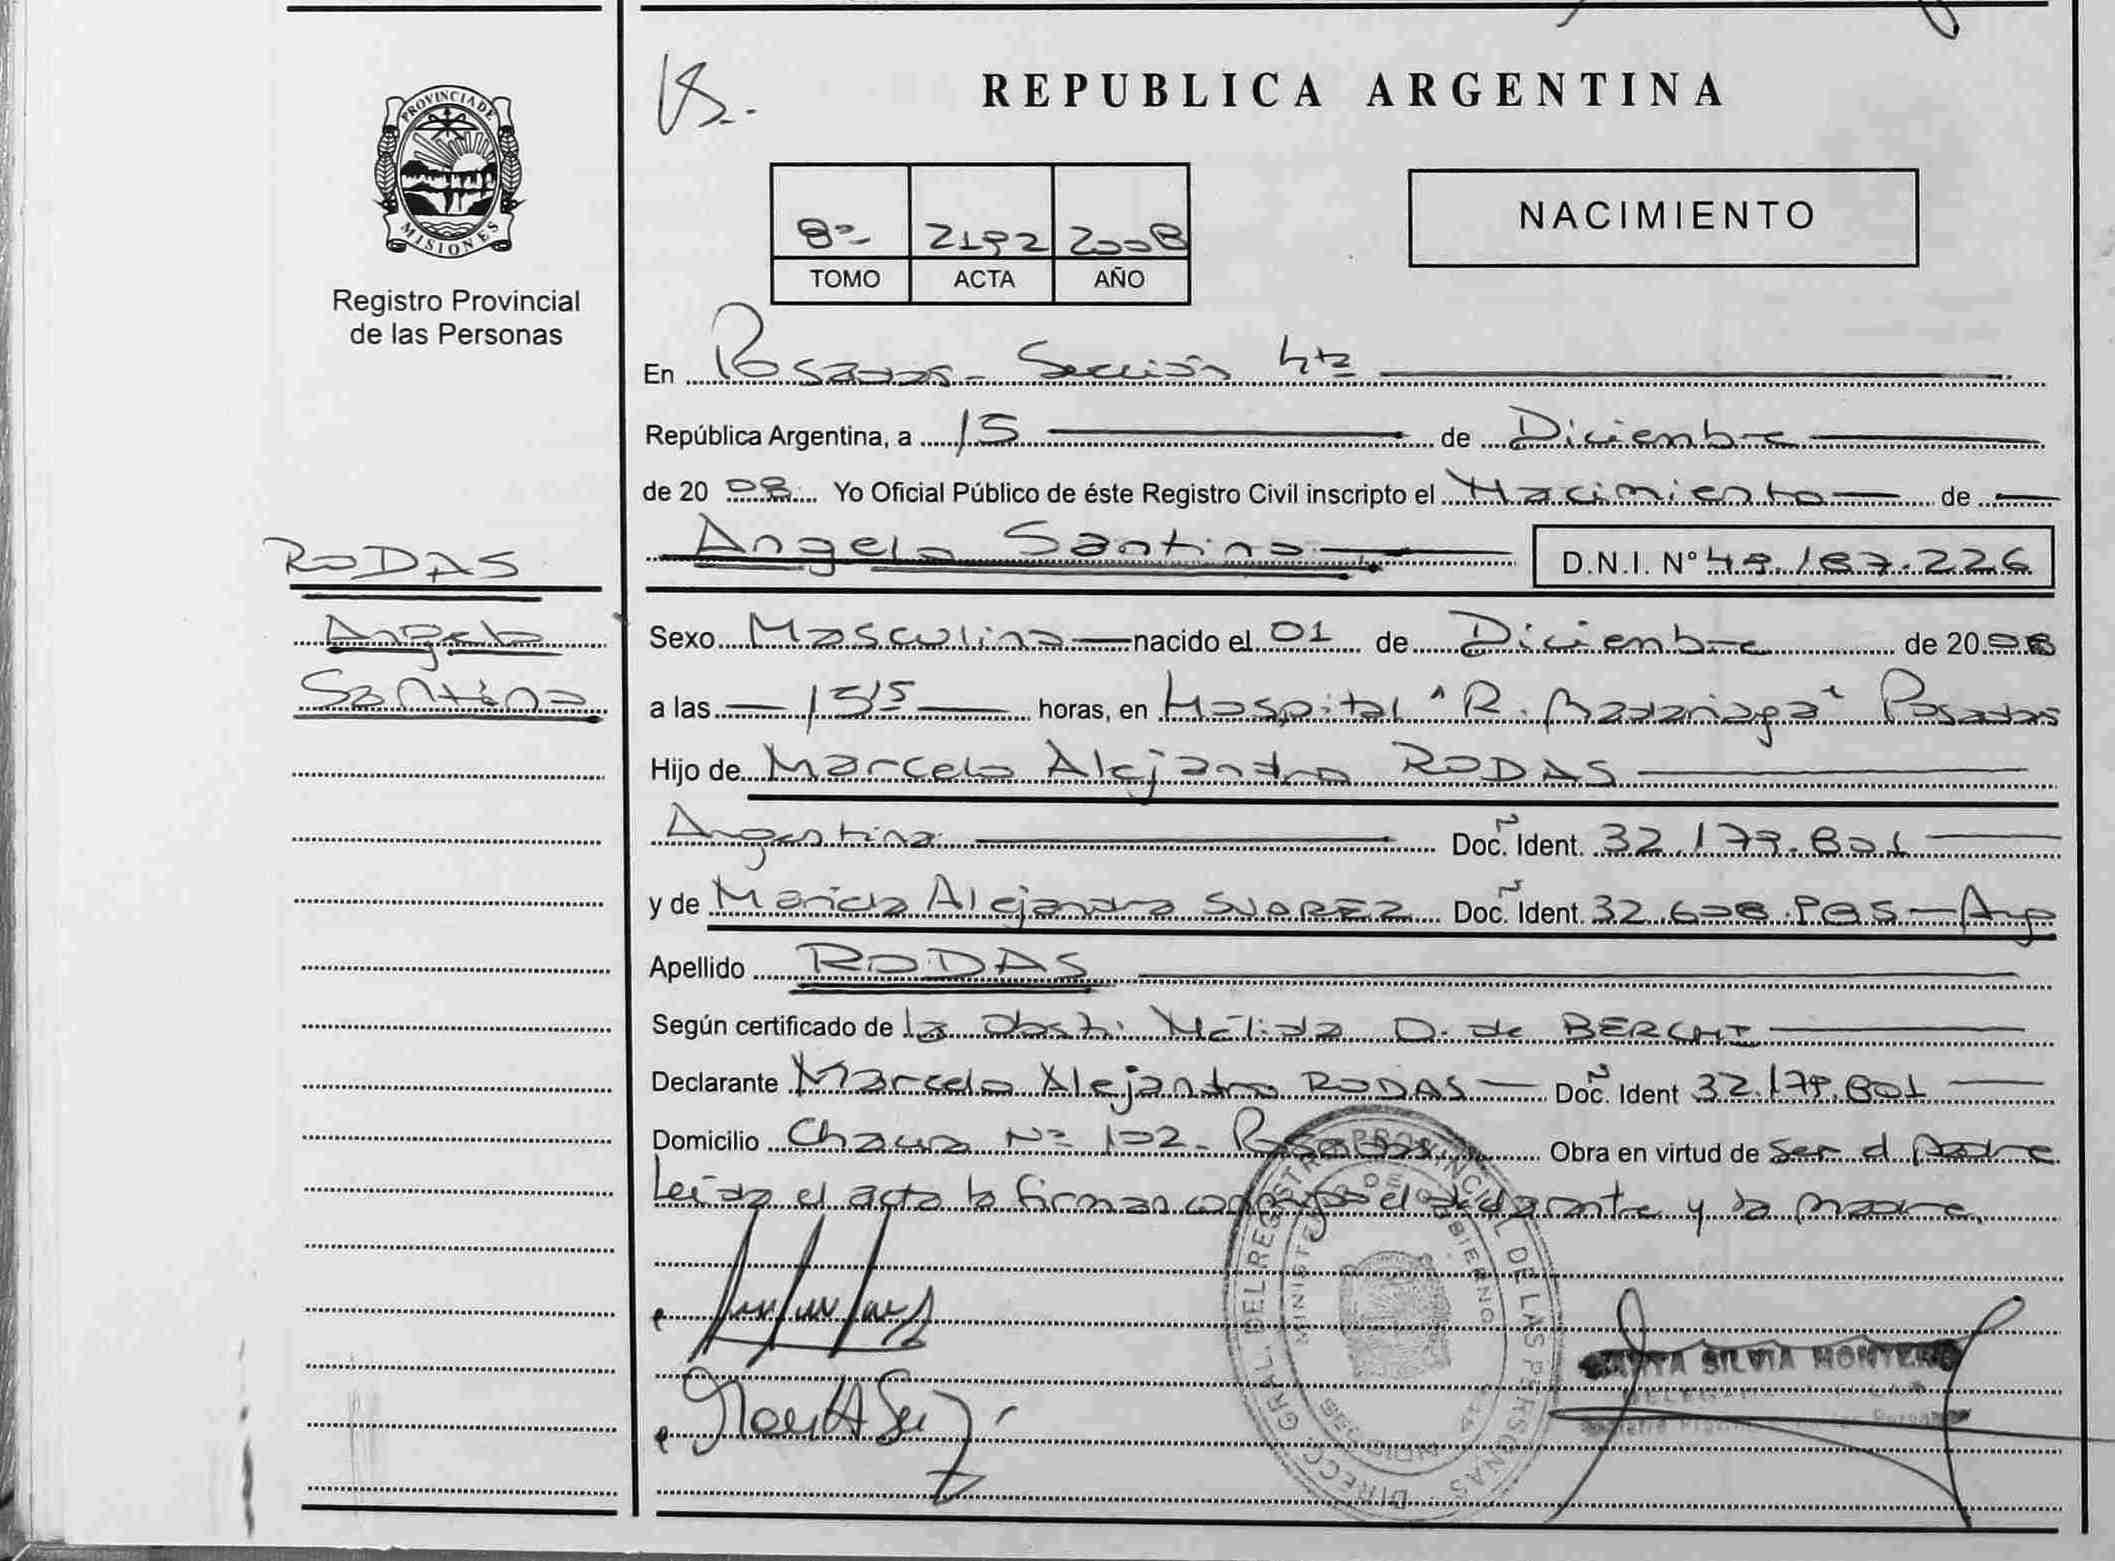 REPUBLICA ARGENTINA
PROVINCIA DE MISIONES
Registro Provincial
de las Personas
NACIMIENTO
8º 2192 2008
TOMO ACTA AÑO
En Posadas - Sección 4ta
República Argentina, a 15 de Diciembre
de 20 08 Yo Oficial Público de éste Registro Civil inscripto el Nacimiento de
Angelo Santino D.N.I. Nº 49.187.226
RODAS
Angelo
Santino
Sexo Masculino nacido el 01 de Diciembre de 20 08
a las 15 15 horas, en Hospital "R. Madariaga" Posadas
Hijo de Marcelo Alejandro RODAS
Argentina Doc. Ident. 32.179.801
y de Alejandra SUAREZ Doc. Ident. 32. Arg
Apellido RODAS
Según certificado de la Obst. Nélida D. de
Declarante Marcelo Alejandro RODAS Doc. Ident 32.179.801
Domicilio Nº 102 - Posadas Obra en virtud de ser el padre
Leída el acta la firman conmigo el declarante y la madre.
DIRECC. GRAL. DEL REGISTRO PROVINCIAL DE LAS PERSONAS
MINISTERIO DE GOBIERNO
SILVIA MONTERO